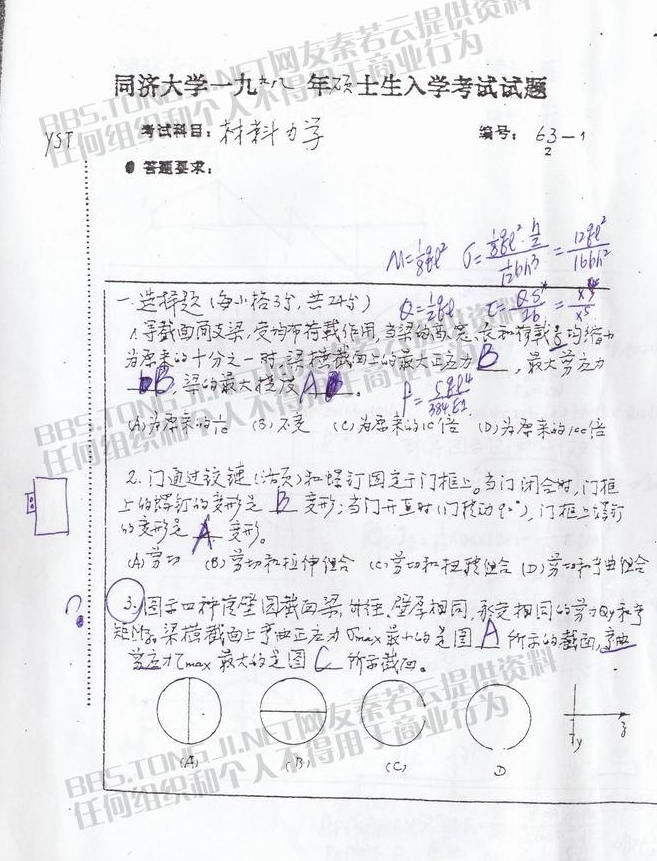 BBS.TONGJI.NET网友秦若云提供资料
任何组织和个人不得用于商业行为
同济大学一九九八年硕士生入学考试试题
YST
考试科目：材料力学
编号：63-1
2
答题要求：
M=1/8ql² σ=(1/8ql²·h/2)/(1/12bh³)=12ql²/16bh²
一.选择题(每小格3分,共24分)
Q=1/2ql τ=QS*/Ib=
1.等截面简支梁,受均布荷载作用,当梁的高、宽、长和荷载q均缩小
为原来的十分之一时,梁横截面上的最大正应力 B ,最大剪应力
B ,梁的最大挠度 A 。
f=5ql⁴/384EI
(A)为原来的1/10 (B)不变 (C)为原来的10倍 (D)为原来的100倍
2.门通过铰链(活页)和螺钉固定于门框上。当门闭合时,门框
上的螺钉的变形是 B 变形;当门开直时(门转动90°),门框上螺钉
的变形是 A 变形。
(A)剪切 (B)剪切和拉伸组合 (C)剪切和扭转组合 (D)剪切和弯曲组合
?
3.图示四种薄壁圆截面梁,外径、壁厚相同,承受相同的剪力Qy和弯
矩Mz,梁横截面上弯曲正应力σmax最小的是图 A 所示的截面,弯曲
剪应力τmax最大的是图 C 所示截面。
(A) (B) (C) D
y z
BBS.TONGJI.NET网友秦若云提供资料
任何组织和个人不得用于商业行为